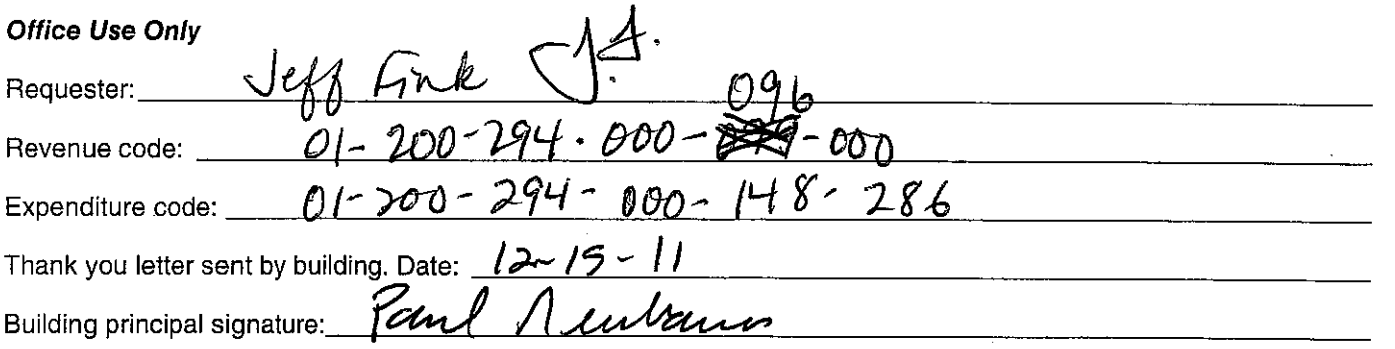 Office Use Only
Requester: Jeff Fink J.F.
096
Revenue code: 01-200-294.000- -000
Expenditure code: 01-200-294-000-148-286
Thank you letter sent by building. Date: 12-15-11
Building principal signature: Paul